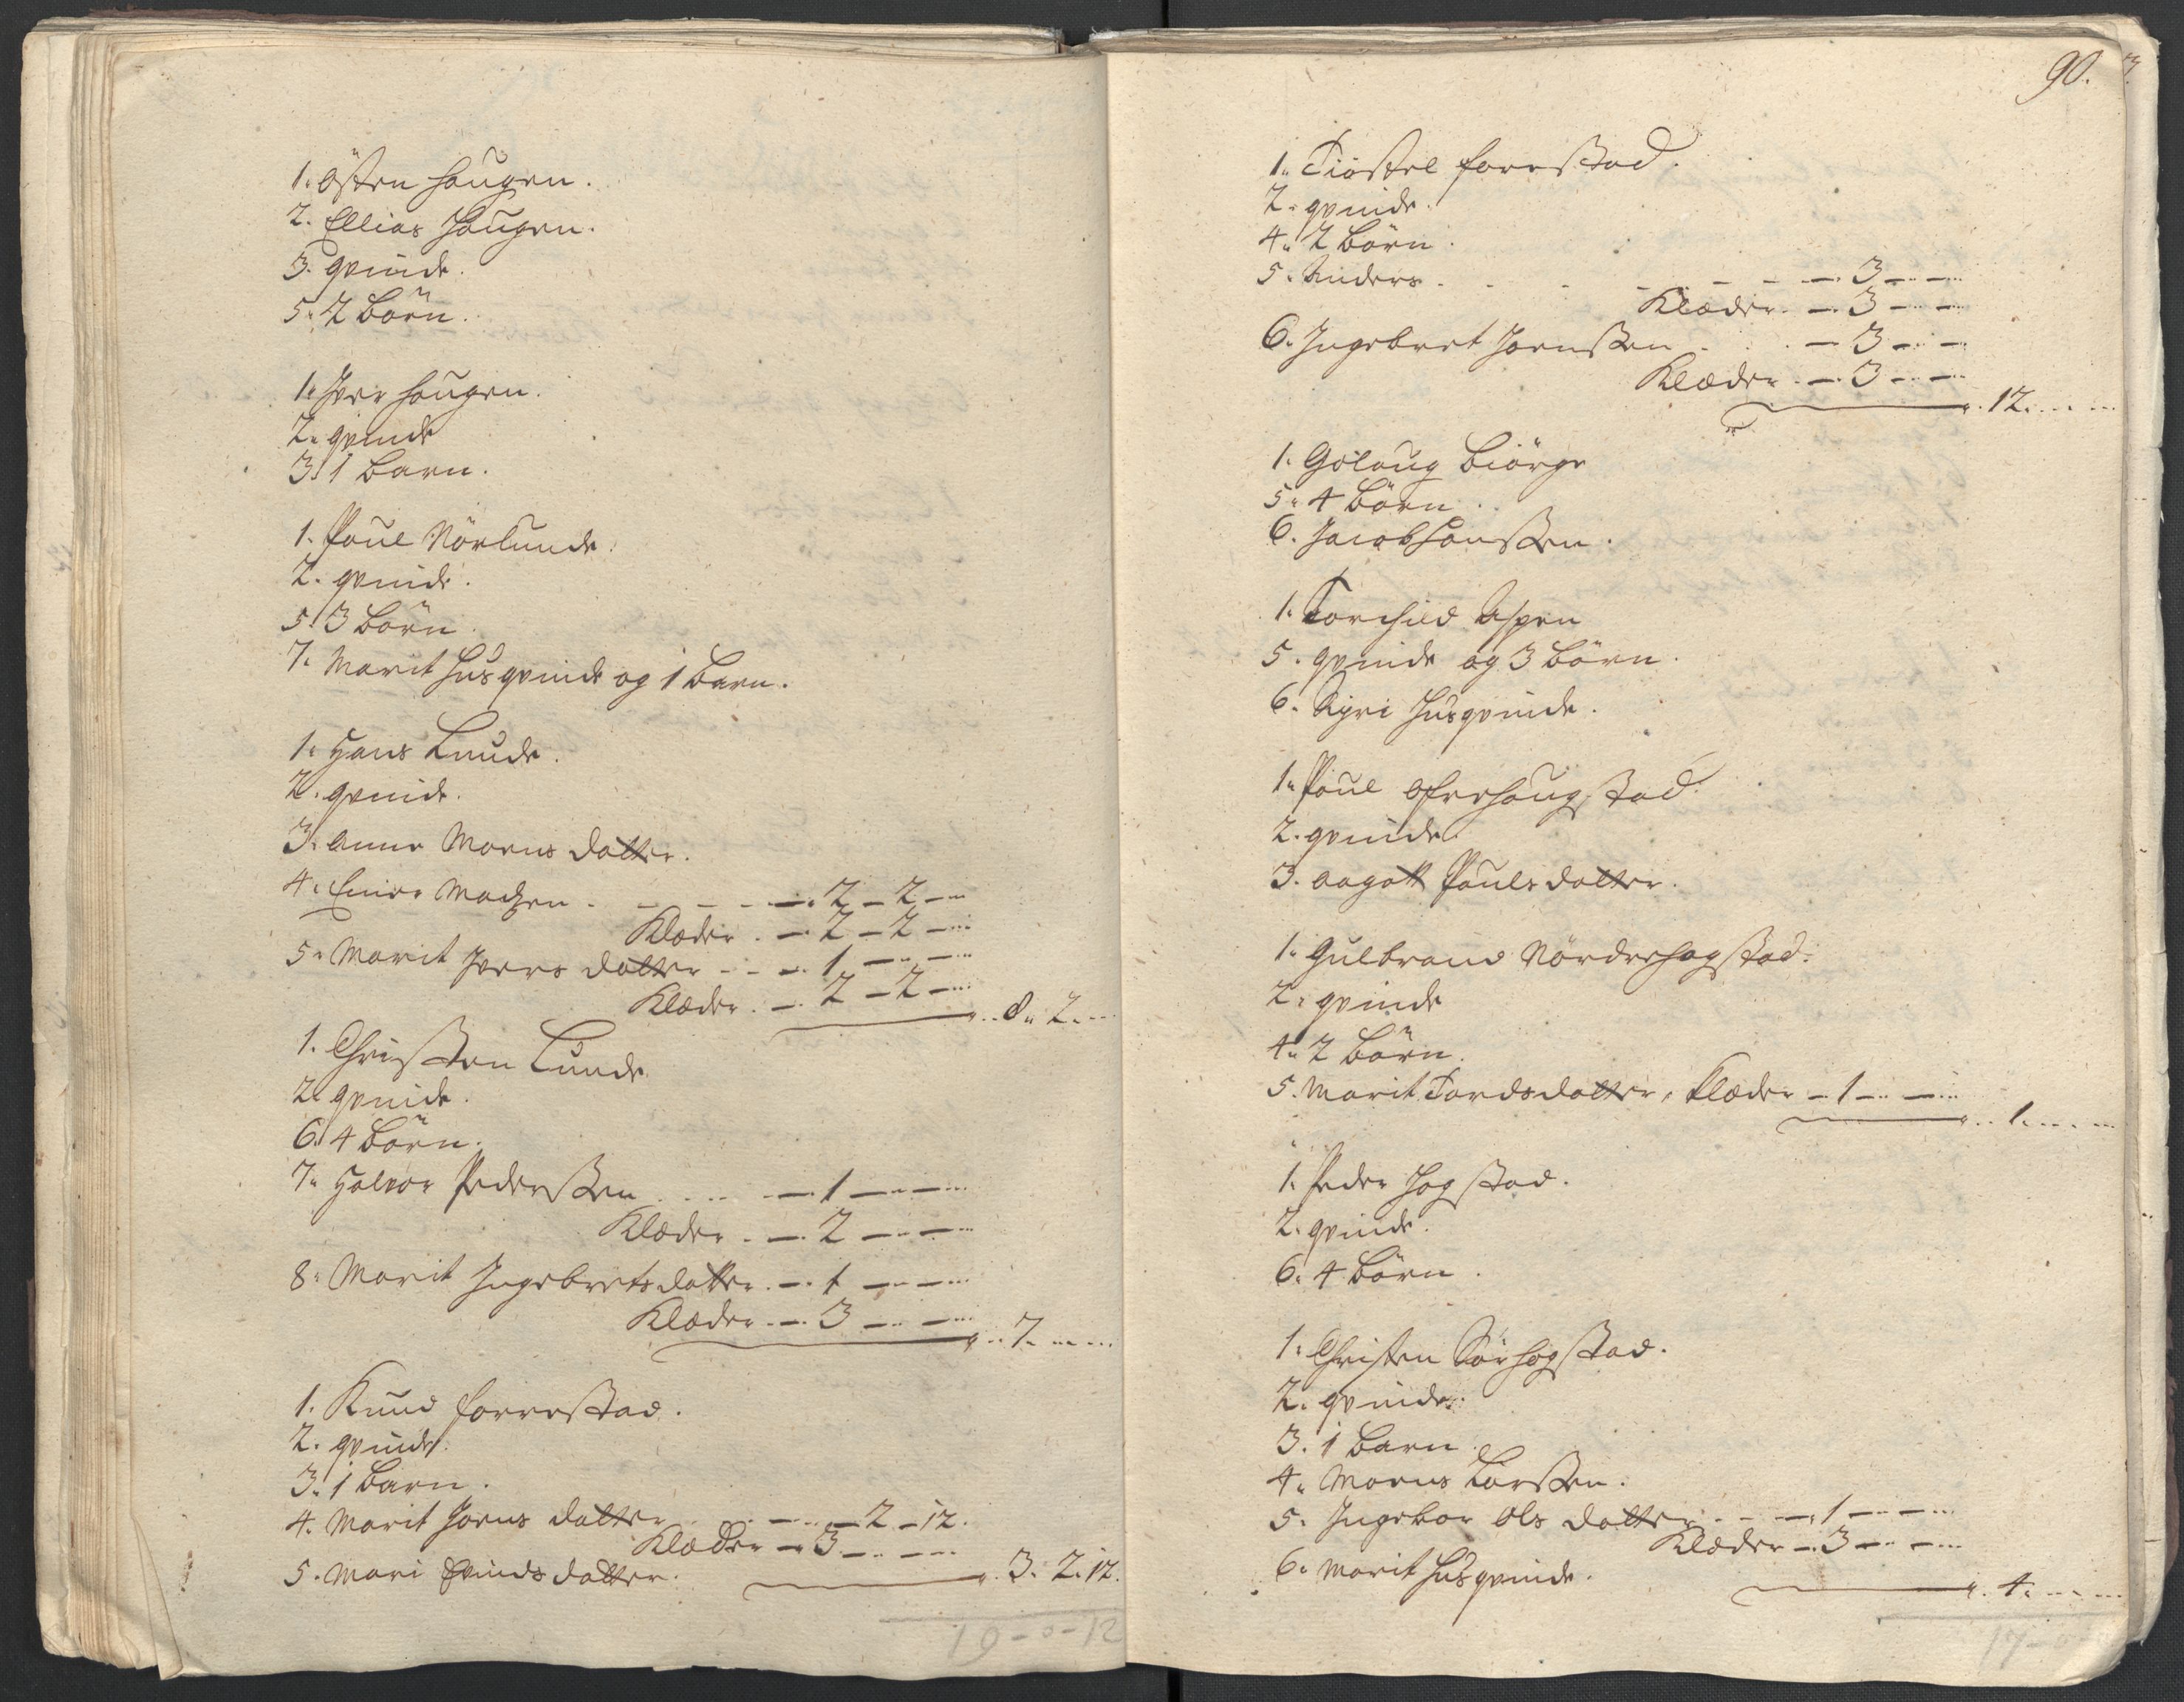 1. Östen Haugen.
2. Ellias Haugen.
3. qvinde.
5. 2 Börn.
1. Iver Haugen.
2. qvinde
3. 1 Barn.
1. Poul Nörlunde.
2. qvinde.
5. 3 Börn
7. Marit Husqvinde og 1 Barn.
1. Hans Lunde.
2. qvinde.
3. Anne Moens datter.
4. Madzen . - - - 2 - 2 -
Klæder . - 2 - 2 -
5. Marit Ivers datter - - 1 - -
Klæder . - 2 - 2 -
8. 2.
1. Christen Lunde
2. qvinde.
6. 4 Börn.
7. Halvor Pederssen . . . - 1 - -
Klæder . - 2 - -
8. Marit Ingebretsdatter . - 1 - -
Klæder . - 3 - -
7.
1. Knud Forrestad.
2. qvinde.
3. 1 Barn.
4. Marit Joens datter - - 2 - 12.
Klæder - 3 - -
5. Mari Evindsdatter.
3. 2. 12.
19-0-12
90.
1. Tiöstel Forrestad.
2. qvinde.
4. 2 Börn.
5. Anders . . - - - 3 - -
Klæder . - 3 - -
6. Ingebret Joenssen . . - 3 - -
Klæder . - 3 - -
12.
1. Gölaug Biörge
5. 4 Börn.
6. Jacob Hanssen.
1. Torchild Aspen
5. qvinde og 3 Börn.
6. Sigri Husqvinde.
1. Poul Öfrehaugstad.
2. qvinde.
3. Aagott Poulsdatter.
1. Gulbrand Nordrehogstad.
2. qvinde
4. 2 Börn.
5. Marit Tordsdatter, Klæder - 1 - -
1.
1. Peder Hogstad.
2. qvinde.
6. 4 Börn.
1. Christen Sörhogstad.
2. qvinde.
3. 1 Barn.
4. Moens Larssen.
5. Ingebor Ols datter - - 1 - -
Klæder - 3 - -
6. Marit Husqvinde.
4.
17-0-